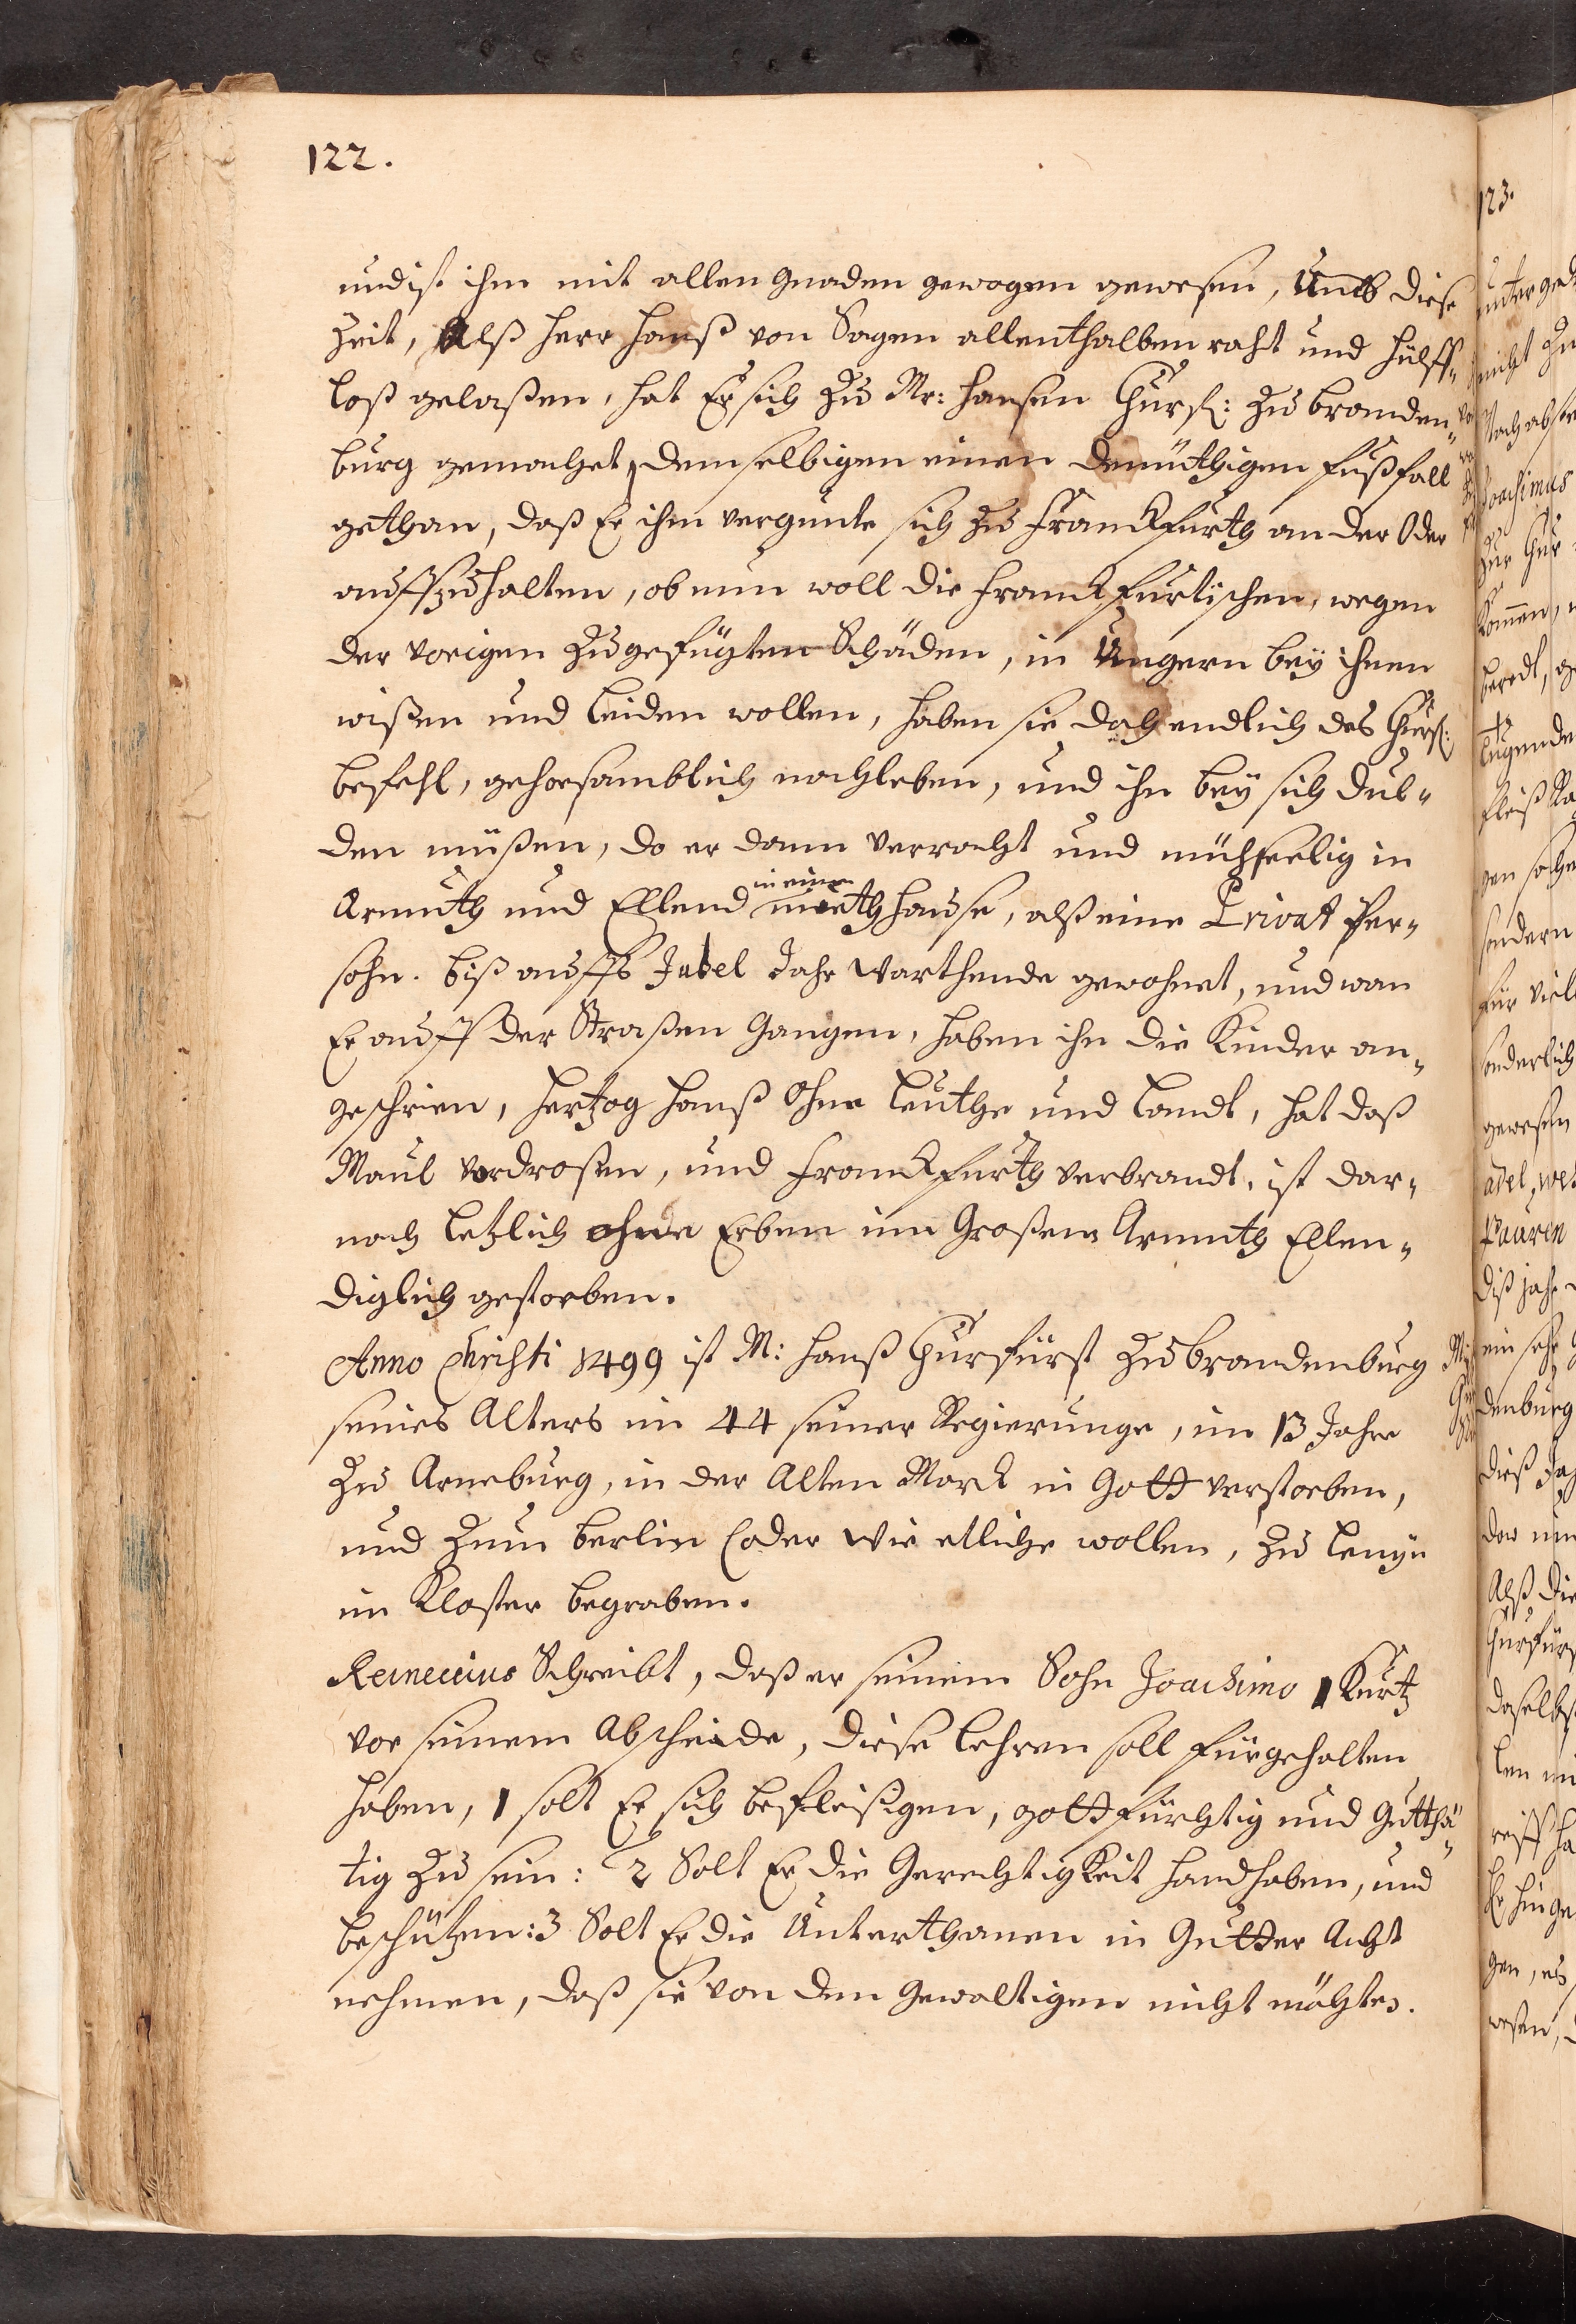 122.
und ist ihm mit allen gnaden gewogen gewesen, Umb diese
Zeit, Alß Herr Hanß von Sagen allenthalben raht und hülff-
loß gelaßen, hat Er sich Zu Mr: Hansen Churf: Zu branden-
burg gemachet, demselbigen einen demüthigen fußfall
gethan, daß Er ihm vergunte sich Zu Franckfurth an der Oder
auffzuhalten, ob nun woll die Franckfurtischen, wegen
der vorigen Zugefügten Schäden, in Ungern bey ihnen
wißen und leiden wollen, haben sie doch endlich des Churf:
befehl, gehorsamblich nachleben, und ihn bey sich dul-
den müßen, do er dann verracht und mühseelig in
in einem
Armuth und Ellend miethhause, alß eine Privat Per-
sohn. biß auffs Jubel Jahr warthende gewohnet, und wan
Er auff der Straßen Gangen, haben ihn die Kinder an-
geschrien, Hertzog Hanß Ohne Leuthe und Landt, hat daß
Maul verdroßen, und Franckfurth verbrandt, ist dar-
nach letzlich ohne Erben inn Großem Armuth Ellen-
diglich gestorben.
Anno Christi 1499 ist M: Hanß Churfürst Zu brandenburg
seines Alters im 44 seiner Regierunge, im 13 Jahre
Zu Arneburg, in der Alten Marck in Gott verstorben,
und Zum Berlin (oder wie etliche wollen, Zu Lenyn
im Kloster begraben.
Reineccius Schreibt, daß er seinem Sohn Joachimo 1 Kurtz
vor seinem Abscheide, diese lehren soll fürgehalten
haben, 1 solt Er sich befleißigen, gottfürchtig und Gutthä-
tig Zu sein: 2 Solt Er die Gerechtigkeit handhaben, und
beschützen: 3 Solt Er die Unterthanen in Gutter Acht
nehmen, daß sie von den Gewaltigen nicht möchten.
123.